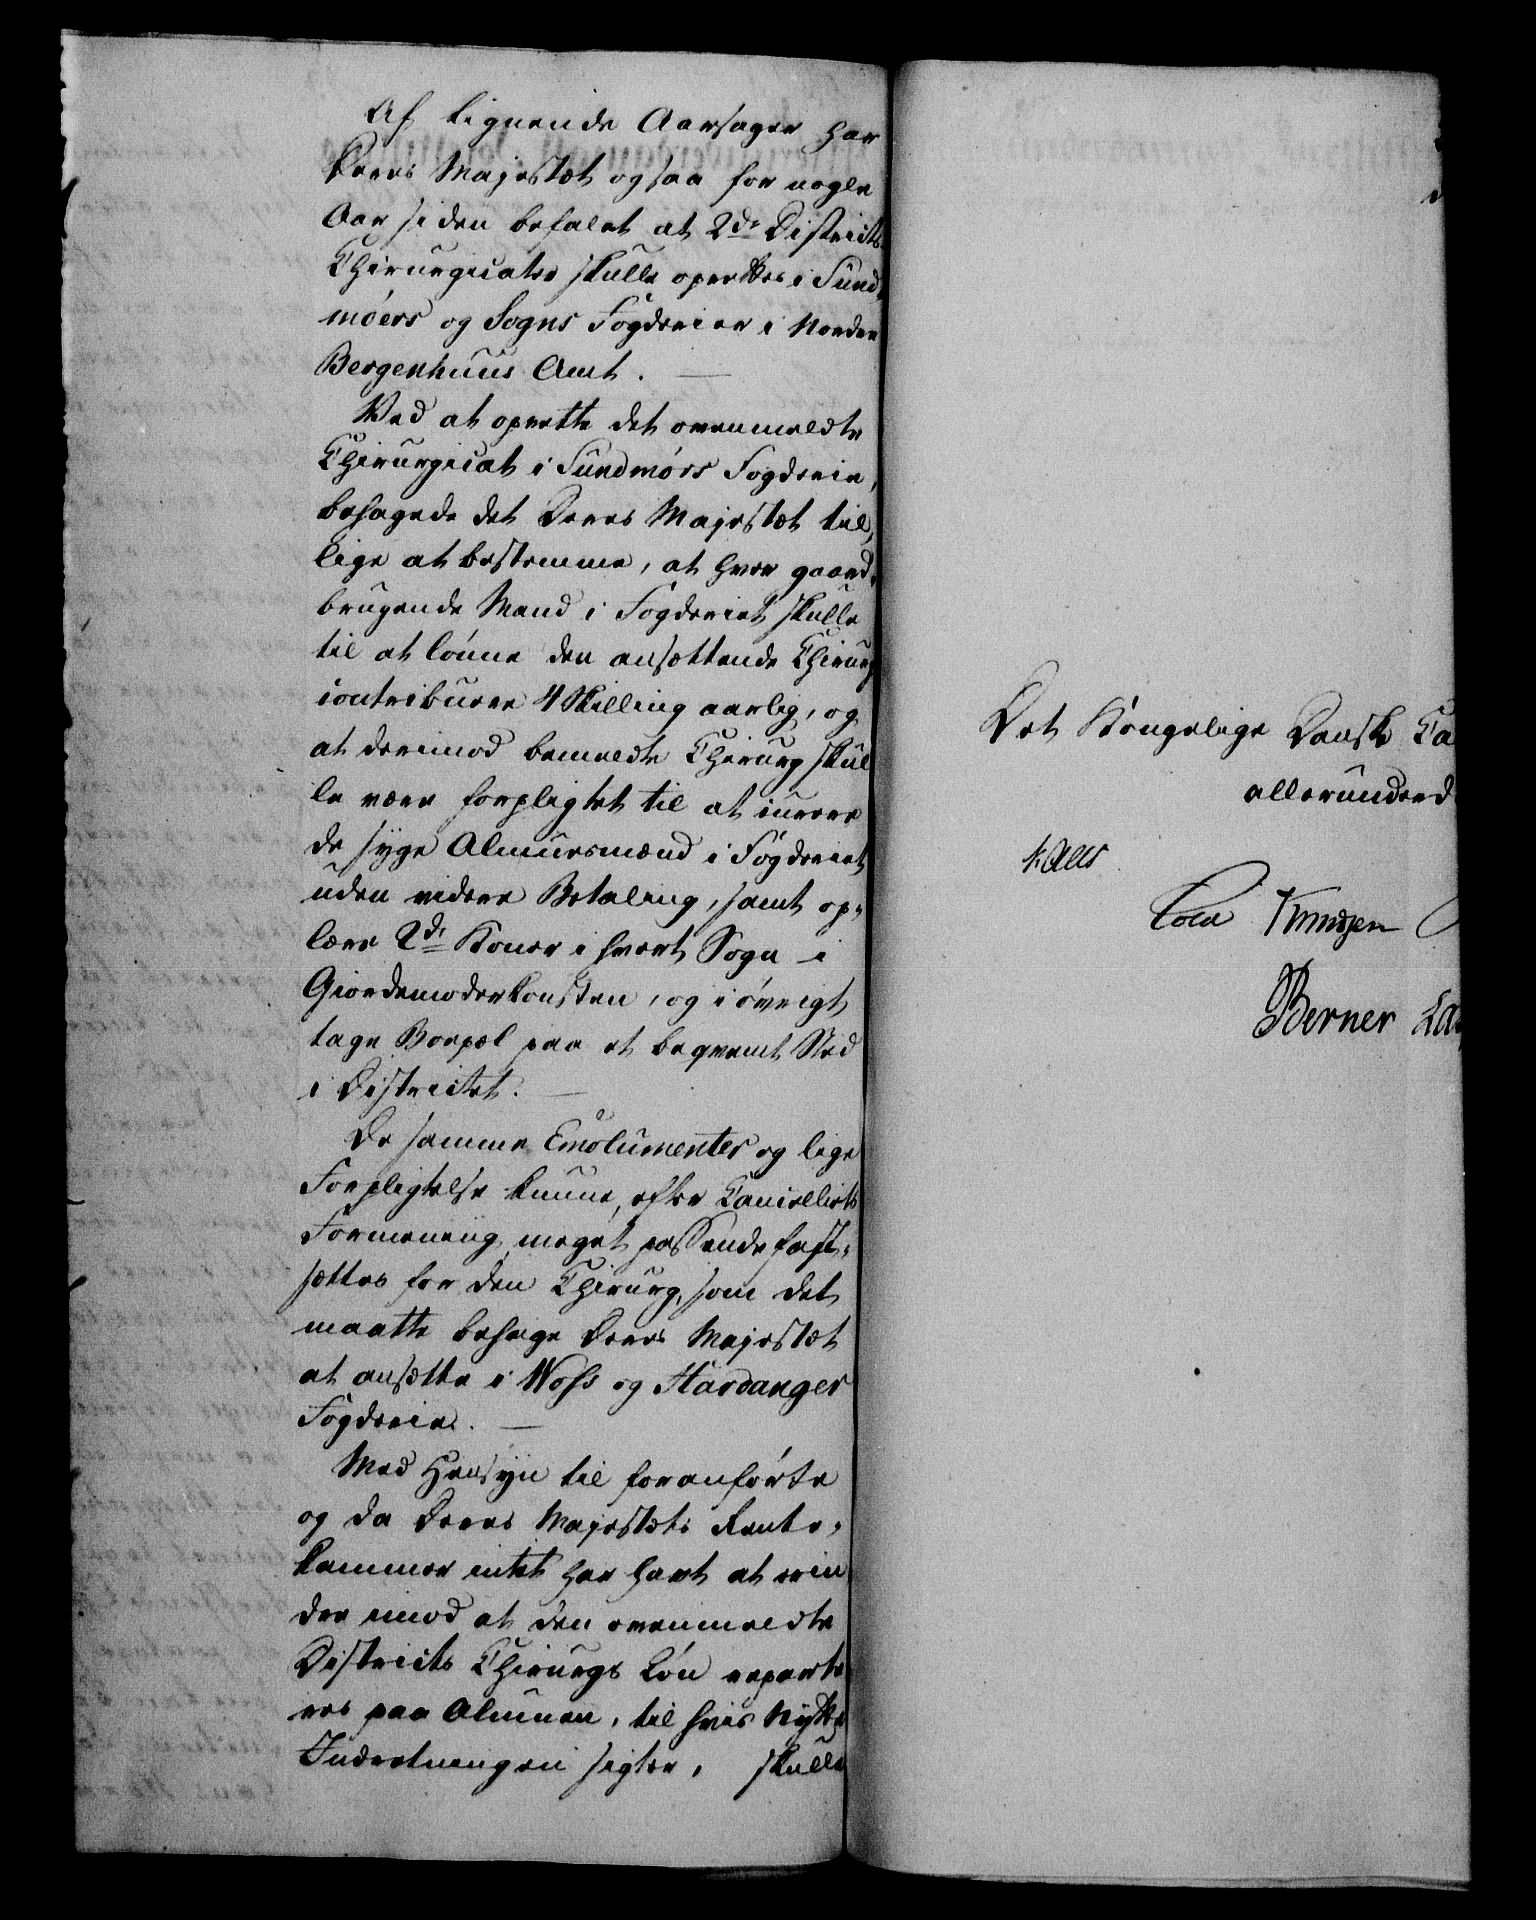 Af lignende Aarsager har
Deres Majestæt ogsaa for nogle
Aar siden befalet at 2de Districts
Chirurgicater skulle oprettes i Sund
møers og Sogns Fogderier i Nordre
Bergenhuus Amt. —
Ved at oprette det ovenmeldte
Chirurgicat i Sundmørs Fogderie,
behagede det Deres Majestæt til,
lige at bestemme, at hver gaard,
brugende Mand i Fogderiet skulle
til at lønne den ansættende Chirurg
contribuere 4 Skilling aarlig, og
at derimod bemeldte Chirurg skul
le være forpligtet til at curere
de syge Almuesmænd i Fogderiet
uden videre Betaling, samt op,
lære 2de Koner i hvert Sogn i
Giordemoderkonsten, og i øvrigt
tage Boepæl paa et beqvemt Sted
i Districtet. —
De samme Emolumenter og lige
Forpligtelse kunne, efter Cancelliets
Formening, meget passende fast,
sættes for den Chirurg, som det
maatte behage Deres Majestæt
at ansætte i Woss og Hardanger
Fogderie. —
Med Hensyn til foranførte
og da Deres Majestæts Rente,
kammer intet har havt at erin
dre imod at den ovenmeldte
Districts Chirurgs Løn reparte
res paa Almuen, til hvis Nytte
Indretningen sigter, skulle
Det Kongelige Danske Ca
allerunderd
Kaas
Cold Knudsen
Berner